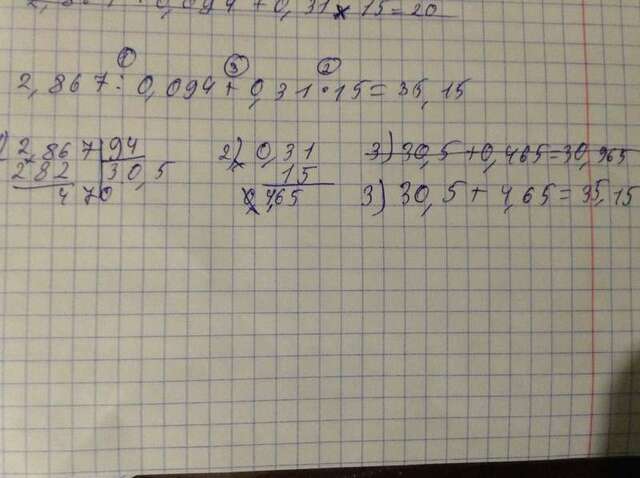 0,094 + 0,31 × 15 = 20
① ③ ②
2,867 : 0,094 + 0,31 · 15 = 35,15
2,867 94 2) 0,31 3) 30,5 + 0,465 = 30,965
282 30,5 15 3) 30,5 + 4,65 = 35,15
470 0,465